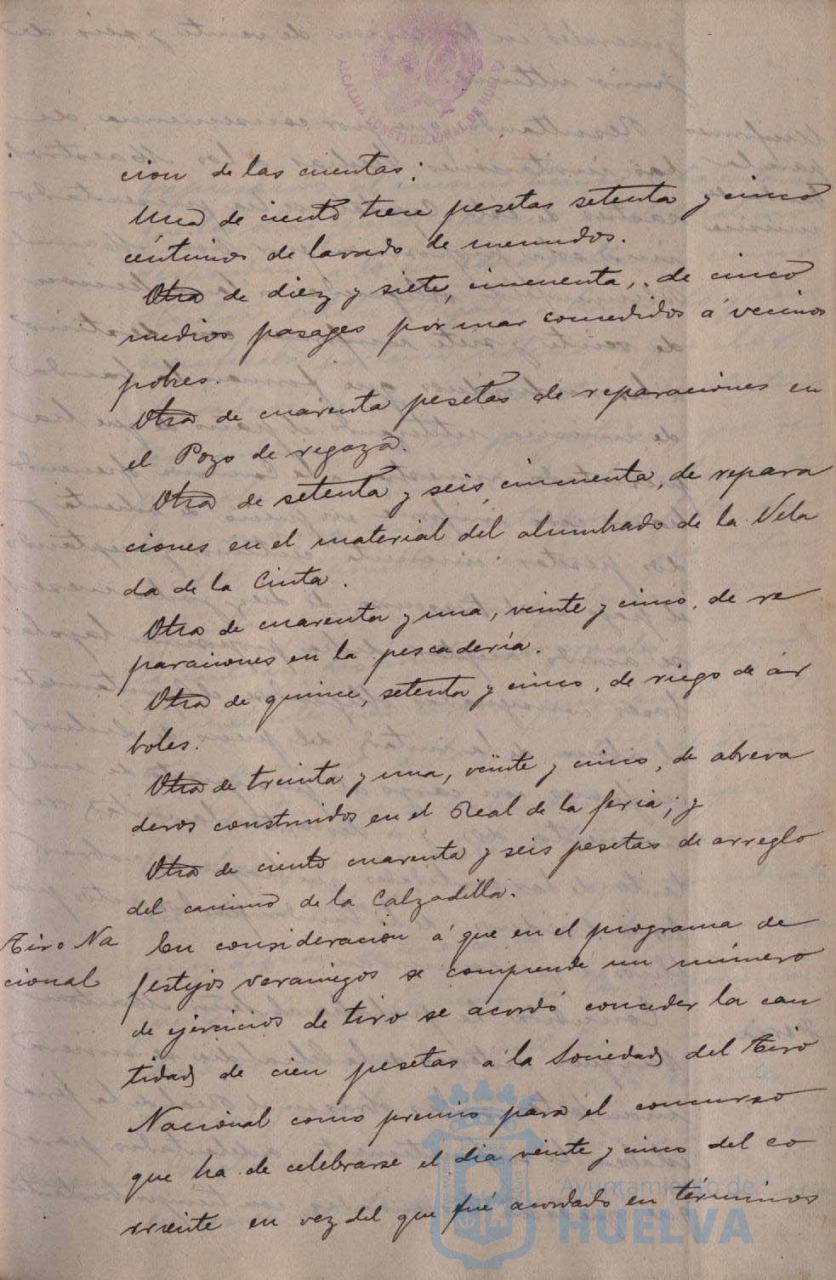 ALCALDIA CONSTITUCIONAL DE HUELVA
cion de las cuentas:
Una de ciento trece pesetas setenta y cinco
céntimos de lavado de menudos.
Otra de diez y siete, cincuenta, de cinco
medios pasages por mar concedidos á vecinos
pobres.
Otra de cuarenta pesetas de reparaciones en
el Pozo de regaza.
Otra de setenta y seis, cincuenta, de repara
ciones en el material del alumbrado de la Vela
da de la Cinta.
Otra de cuarenta y una, veinte y cinco, de re
paraciones en la pescadería.
Otra de quince, setenta y cinco, de riego de ár
boles.
Otra de treinta y una, veinte y cinco, de abreva
deros construidos en el Real de la feria; y
Otra de ciento cuarenta y seis pesetas de arreglo
del camino de la Calzadilla.
Tiro Na
cional
En consideración á que en el programa de
festejos veraniegos se comprende un número
de ejercicios de tiro se acordó conceder la can
tidad de cien pesetas á la Sociedad del Tiro
Nacional como premio para el concurso
que ha de celebrarse el dia veinte y cinco del co
rriente en vez del que fué acordado en términos
Ayuntamiento de
HUELVA